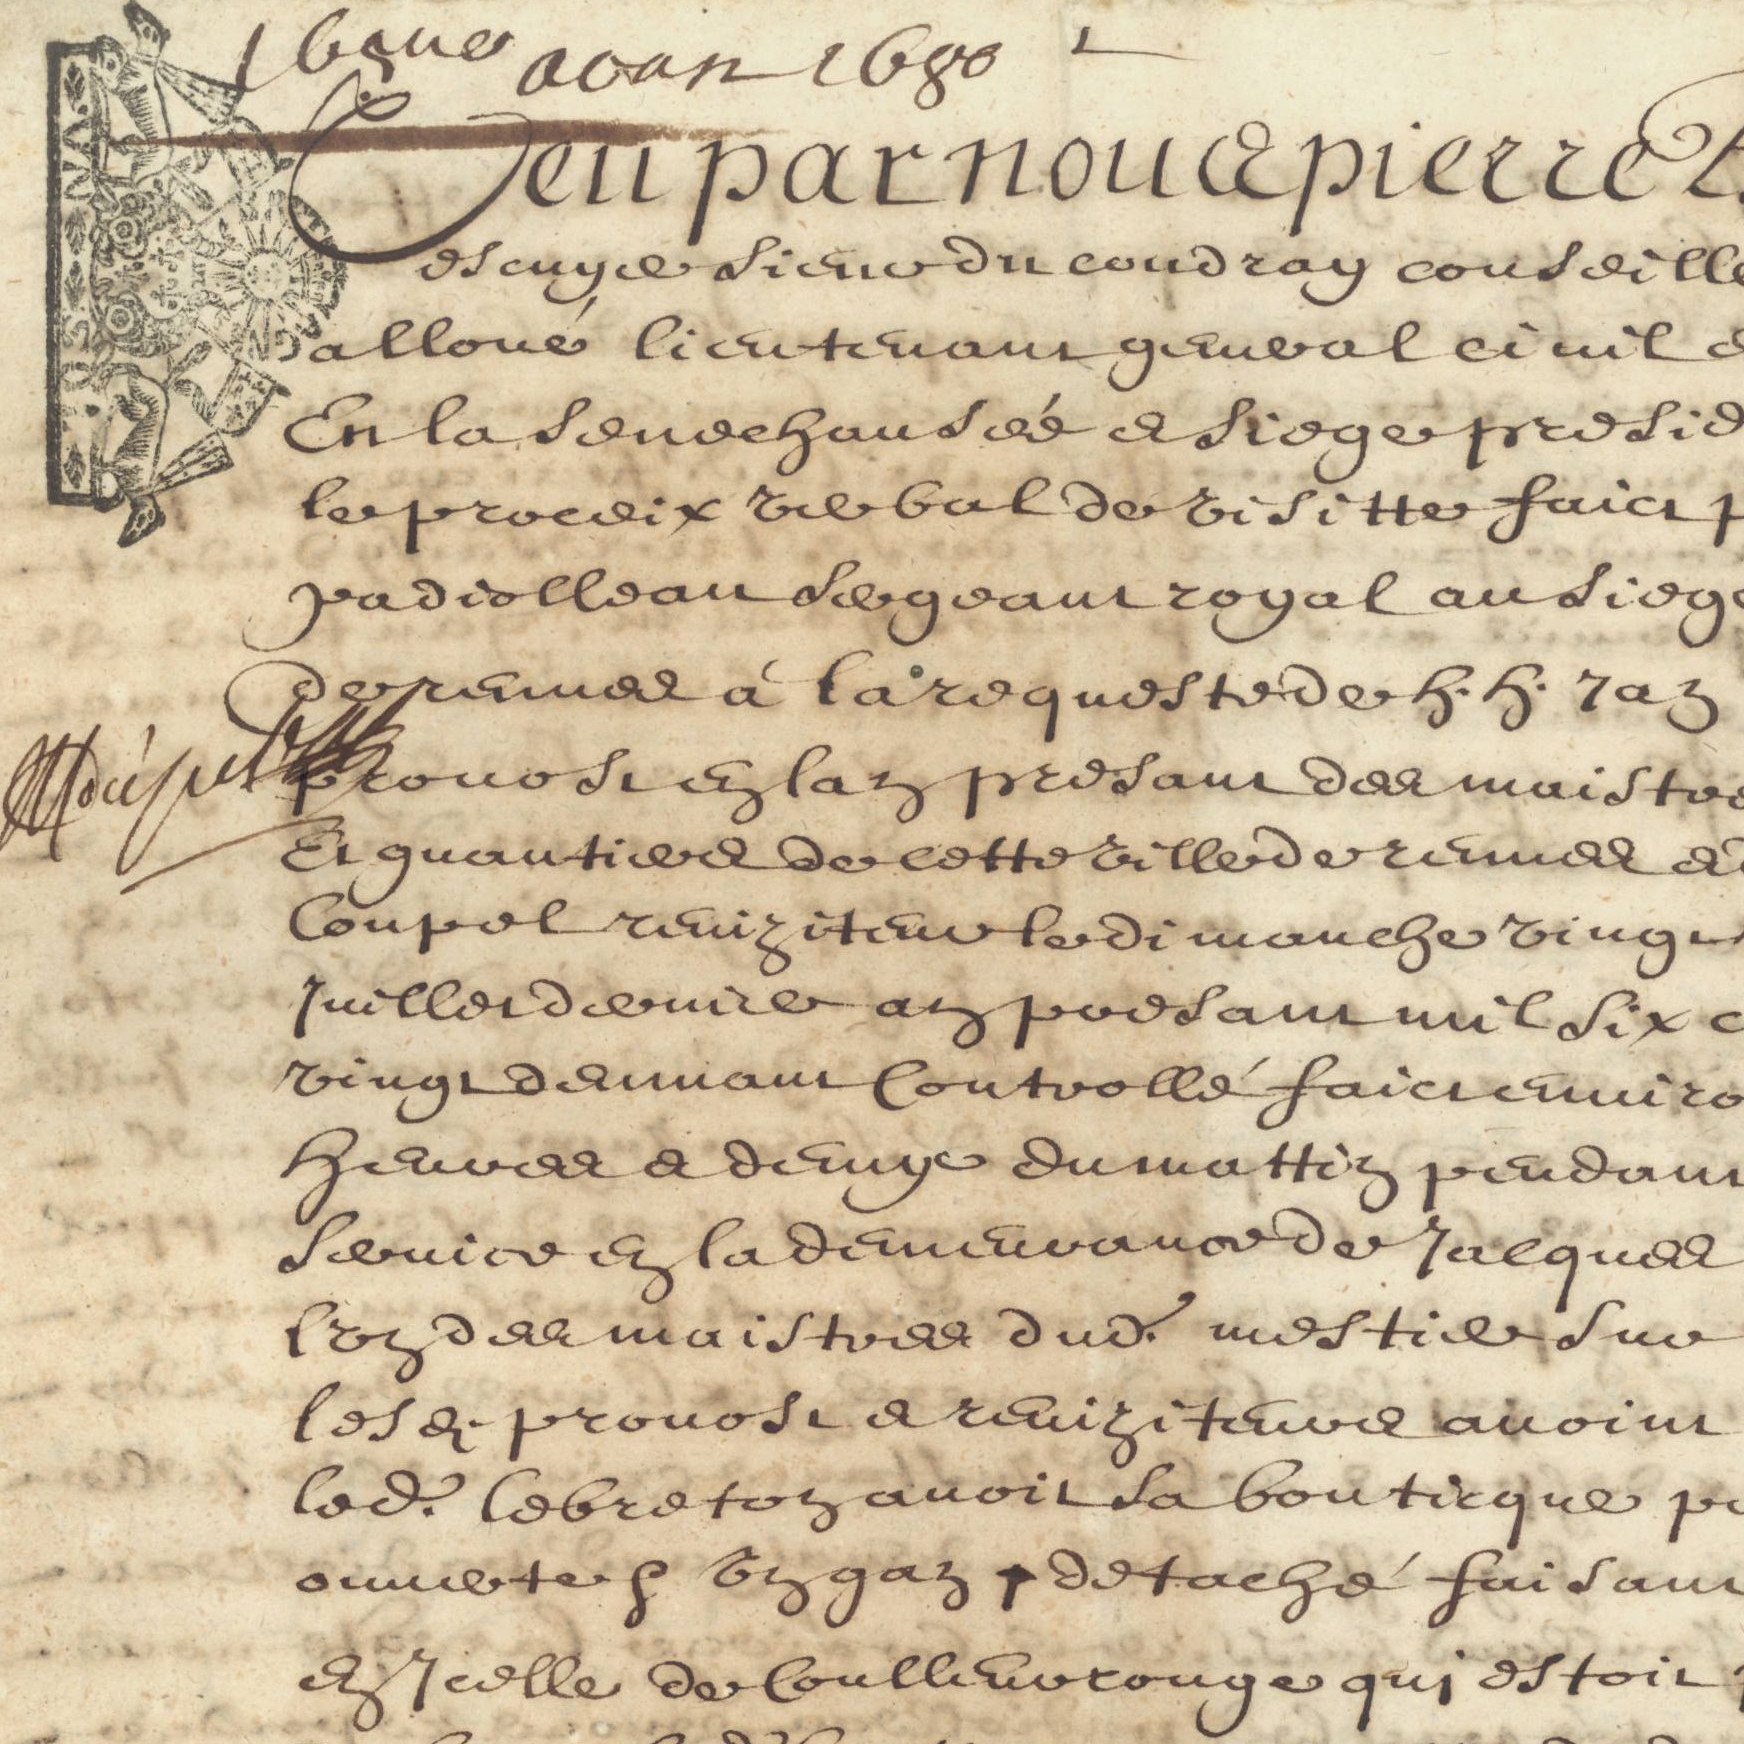 aoust 1680
Veu par nous pierre
escuyer sieur du coudray conseille
alloué lieutenant general civil e
En la senechaussée et siege presid
le proceix verbal de visitte faict p
padiolleau sergeant royal au siege
de rennes à la requeste de h. h. Jan
provost en lan presant des maistre
Et gantiers de cette ville de rennes et
Coupel reuiziteur le dimanche vingt
Juillet dernier an presant mil six c
vingt deument Controllé faict enuiro
heures et demye du mattin pendant
seruice en la demeurance de Jacques
lvn des maistres dud. mestier sur
lesd. prouost et reuiziteurs auoint
led. lebreton auoit sa bouticque p
ouuerte & vn gan detaché faisant
en Jcelle de Coulleur rouge qui estoit